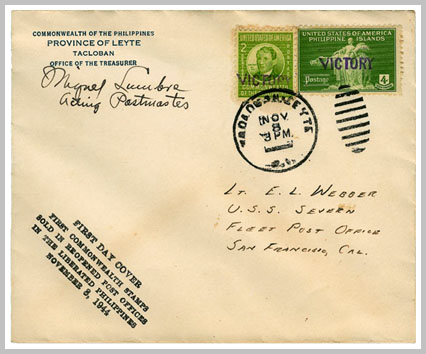 COMMONWEALTH OF THE PHILIPPINES
PROVINCE OF LEYTE
TACLOBAN
OFFICE OF THE TREASURER
Miguel Lumbre
Acting Postmaster
UNITED STATES OF AMERICA
2
VICTORY
UNITED STATES OF AMERICA
PHILIPPINE ISLANDS
VICTORY
Postage
4
TACLOBAN, LEYTE
NOV.
8
3 PM.
P.I.
LT. E. L. WEBBER
U.S.S. SEVERN
FLEET POST OFFICE
SAN FRANCISCO, CAL.
FIRST DAY COVER
FIRST COMMONWEALTH STAMPS
SOLD IN REOPENED POST OFFICES
IN THE LIBERATED PHILIPPINES
NOVEMBER 8, 1944